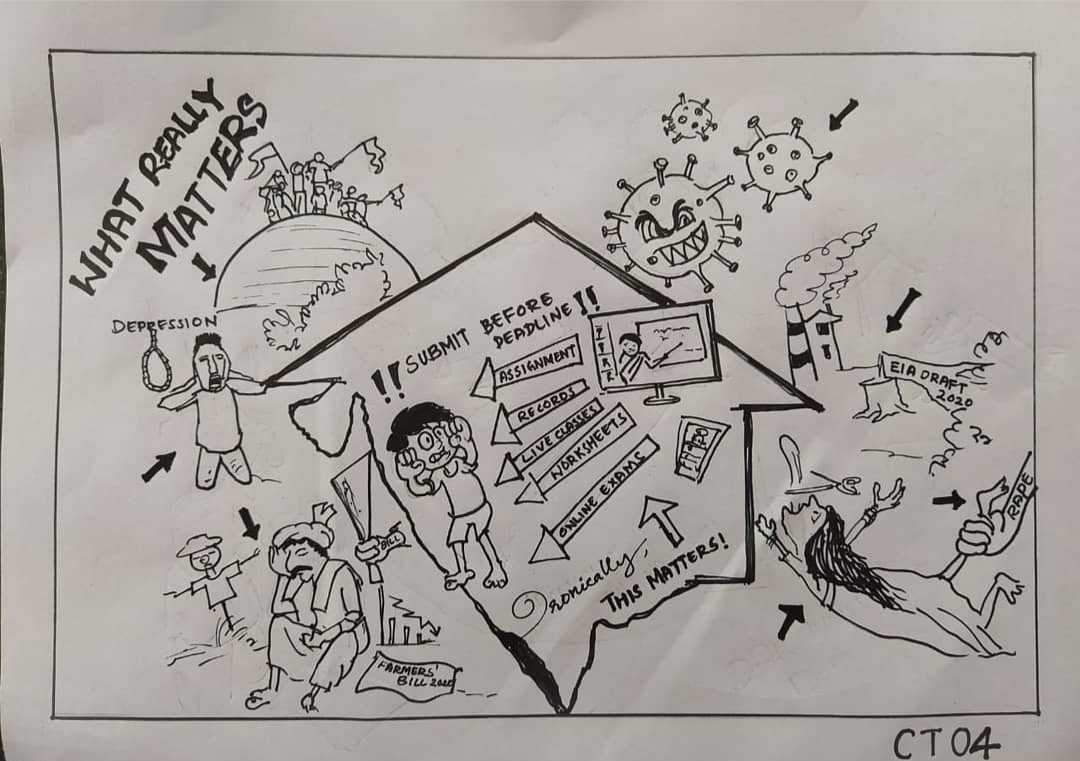 WHAT REALLY
MATTERS
DEPRESSION
!! SUBMIT BEFORE
DEADLINE !!
ASSIGNMENT
RECORDS
LIVE CLASSES
WORKSHEETS
ONLINE EXAMS
Ironically,
THIS MATTERS!
EIA DRAFT
2020
RAPE
BILL
FARMERS'
BILL
CT04